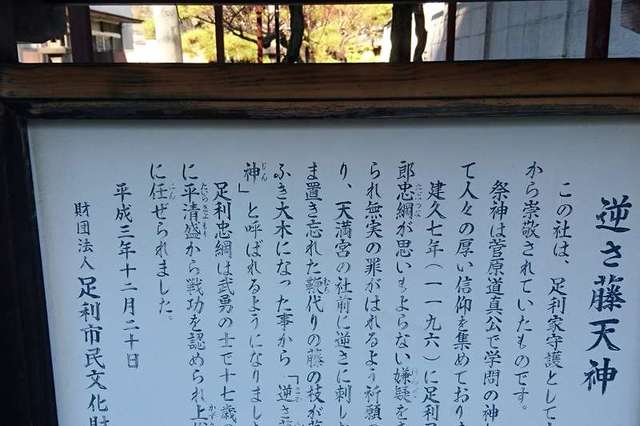 逆さ藤天神
この社は、足利家守護として
から崇敬されていたものです。
祭神は菅原道真公で学問の神
て人々の厚い信仰を集めており
建久七年(一一九六)に足利
郎忠綱が思いもよらない嫌疑を
られ無実の罪がはれるよう祈願
り、天満宮の社前に逆さに刺し
ま置き忘れた鞭代りの藤の枝が
ふき大木になった事から「逆さ
神」と呼ばれるようになりまし
足利忠綱は武勇の士で十七歳
に平清盛から戦功を認められ上
に任ぜられました。
平成三年十二月二十日
財団法人 足利市民文化財